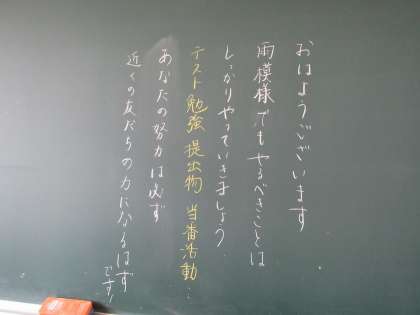 おはようございます
雨模様でもやるべきことは
しっかりやっていきましょう
テスト勉強 提出物 当番活動…
あなたの努力は必ず
近くの友だちの力になるはず
です!